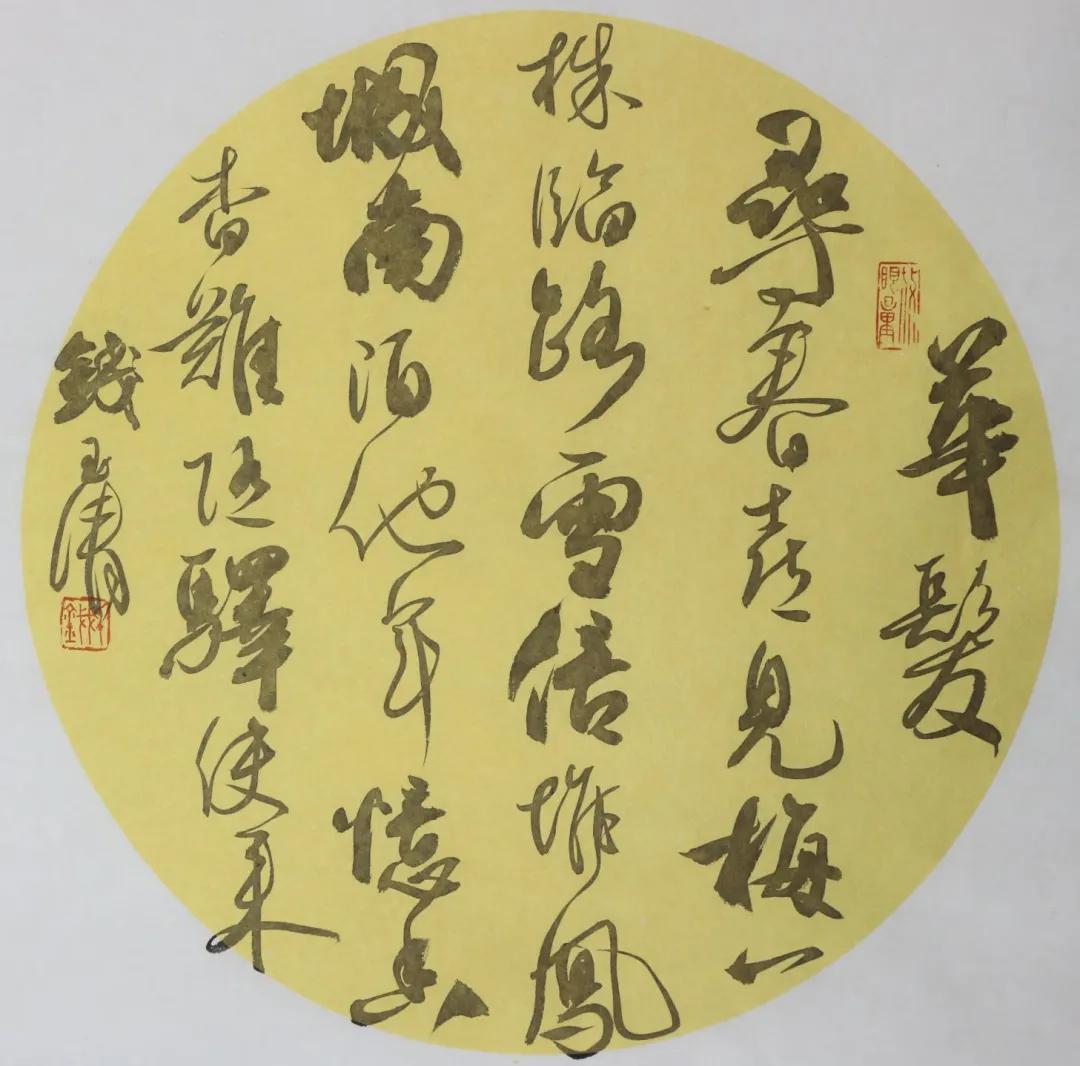 華髮
尋春喜見梅一
株臨路雪倍堆鳳
城南陌他年憶香
杳難随驛使来
錢玉清